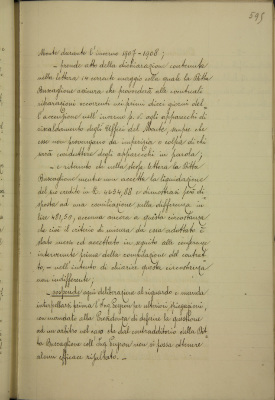 595
Monte durante l'inverno 1907-1908;
- prende atto della dichiarazione contenuta
nella lettera 10 corrente maggio colla quale la Ditta
Buscaglione assicura che provvederà alle eventuali
riparazioni occorrenti nei primi dieci giorni del-
l'accensione nell'inverno p. v. agli apparecchi di
riscaldamento degli Uffici del Monte, sempre che
esse non provengano da imperizia o colpa di chi
sarà conduttore degli apparecchi in parola;
- e ritenuto che colla detta lettera la Ditta
Buscaglione mentre non accetta la liquidazione
del suo credito in L. 4624,88 e dimostrasi però di-
sposta ad una conciliazione sulla differenza in
lire 451,50, accenna ancora a questa circostanza
che cioè il criterio di misura da essa adottato è
stato messo ed accettato in seguito alle conferenze
intervenute prima della compilazione del contrat-
to, - nell'intento di chiarire questa circostanza
non indifferente;
- sospende ogni deliberazione al riguardo e manda
interpellare prima l'Ing. per ulteriori spiegazioni,
con mandato alla Presidenza di deferire la questione
ad un arbitro nel caso che dal contraddittorio della Dit-
ta Buscaglione coll'Ing. non si possa ottenere
alcun efficace risultato. -